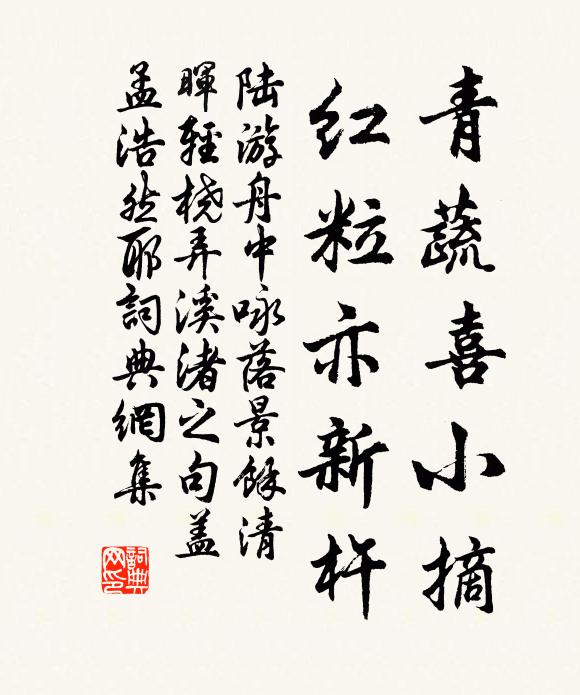 青蔬喜小摘
红粒亦新杵
陆游舟中咏落景馀清
暉輕桡弄溪渚之句盖
孟浩然耶詞典網集
詞典網印